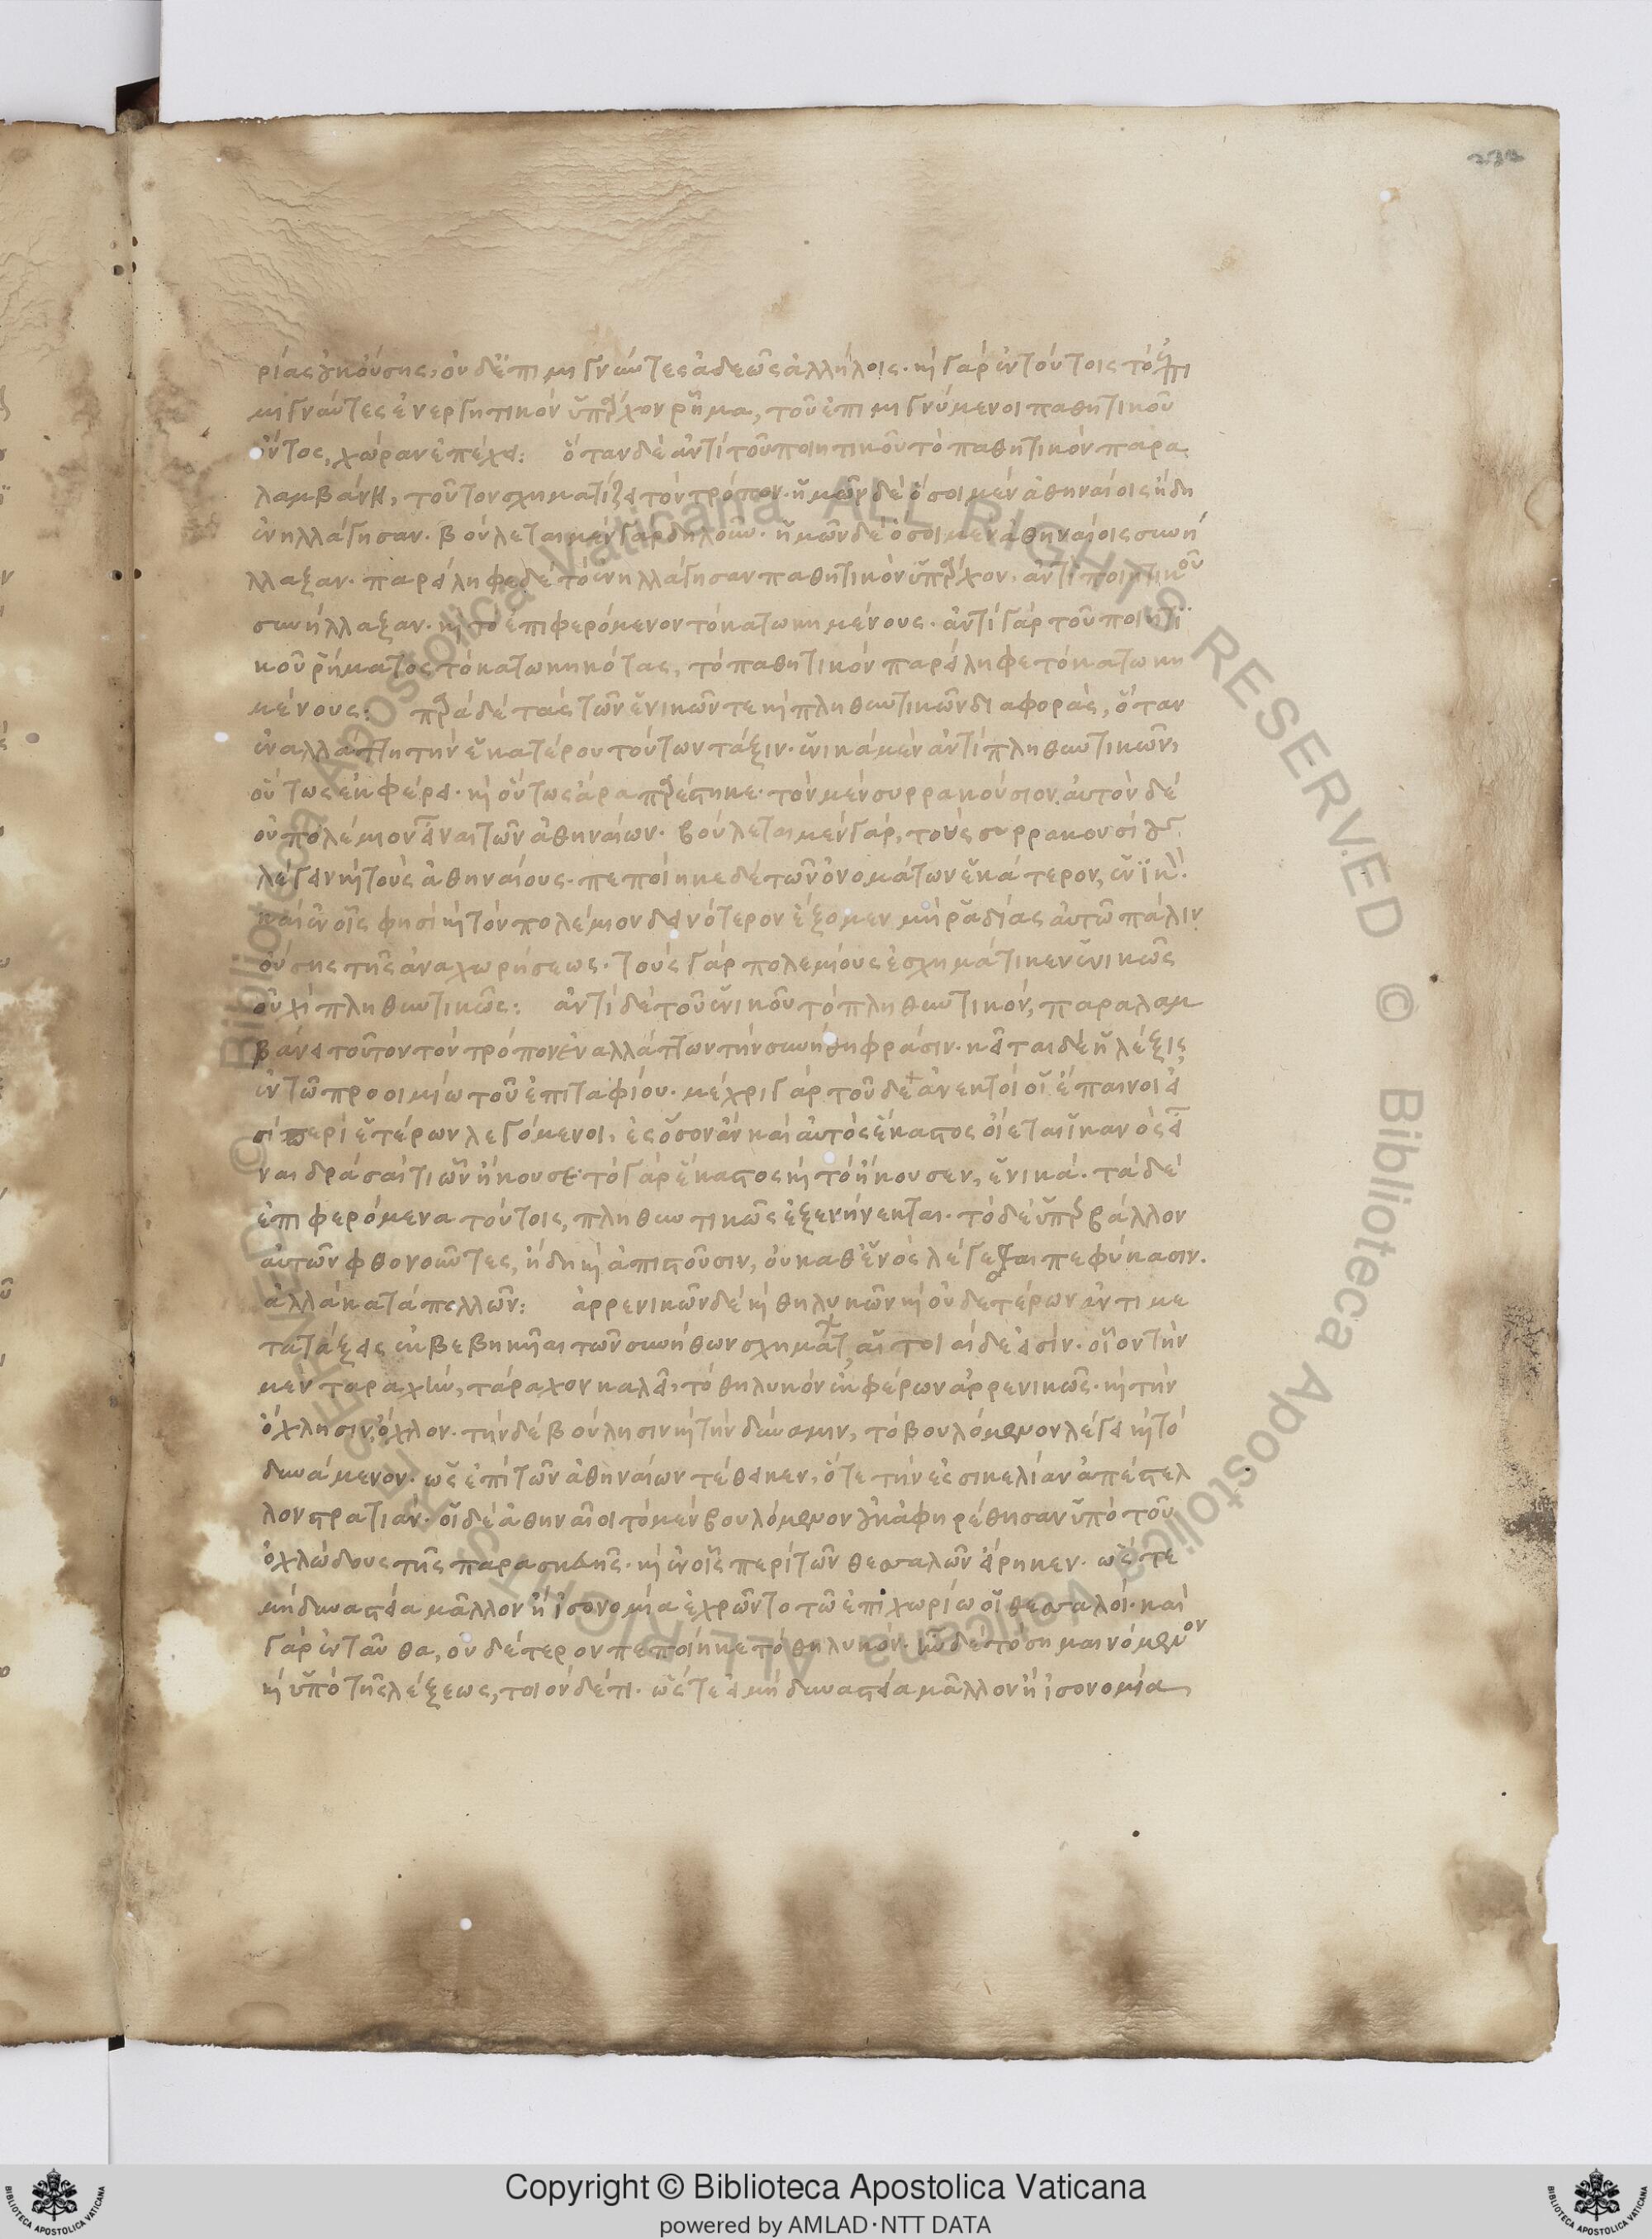 232
ρίας ἐκούσης, οὐδ' ἐπιμιγνύντες ἀδεῶς ἀλλήλοις· καὶ γὰρ ἐν τούτοις τὸ ἐπι
μιγνύντες ἐνεργητικὸν ὑπάρχον ῥῆμα, τοῦ ἐπιμιγνύμενοι παθητικοῦ
ὄντος, χώραν ἐπέχει: ὅταν δὲ ἀντὶ τοῦ ποιητικοῦ τὸ παθητικὸν παρα
λαμβάνῃ, τοῦτον σχηματίζει τὸν τρόπον· ἡμῶν δὲ ὅσοι μὲν ἀθηναίοις ἤδη
ἐνηλλάγησαν· βούλεται μὲν γὰρ δηλοῦν· ἡμῶν δὲ ὅσοι μὲν ἀθηναίοις συνή
λλαξαν· παρείληφε δὲ τὸ ἐνηλλάγησαν παθητικὸν ὑπάρχον, ἀντὶ ποιητικοῦ
συνήλλαξαν· καὶ τὸ ἐπιφερόμενον τὸ κατῳκημένους· ἀντὶ γὰρ τοῦ ποιητι
κοῦ ῥήματος τὸ κατῳκηκότας, τὸ παθητικὸν παρείληφε τὸ κατῳκη
μένους: παρὰ δὲ τὰς τῶν ἑνικῶν τε καὶ πληθυντικῶν διαφοράς, ὅταν
ἐναλλάττῃ τὴν ἑκατέρου τούτων τάξιν· ἑνικὰ μὲν ἀντὶ πληθυντικῶν,
οὕτως ἐκφέρει· καὶ οὕτως ἄρα παρέστηκε· τὸν μὲν συρρακούσιον, αὐτὸν δὲ
οὐ πολέμιον εἶναι τῶν ἀθηναίων· βούλεται μὲν γὰρ, τοὺς συρρακουσίους
λέγειν καὶ τοὺς ἀθηναίους· πεποίηκε δὲ τῶν ὀνομάτων ἑκάτερον, ἑνικόν·
καὶ ἐν οἷς φησὶ καὶ τὸν πολέμιον δεινότερον ἕξομεν μὴ ῥᾳδίας αὐτῷ πάλιν
οὔσης τῆς ἀναχωρήσεως· τοὺς γὰρ πολεμίους ἐσχημάτικεν ἑνικῶς
οὐχὶ πληθυντικῶς: ἀντὶ δὲ τοῦ ἑνικοῦ τὸ πληθυντικόν, παραλαμ
βάνει τοῦτον τὸν τρόπον ἐναλλάττων τὴν συνήθη φράσιν· κεῖται δὲ ἡ λέξις
ἐν τῷ προοιμίῳ τοῦ ἐπιταφίου· μέχρι γὰρ τοῦδε ἀνεκτοὶ οἱ ἔπαινοι εἰ
σὶ περὶ ἑτέρων λεγόμενοι, ἐς ὅσον ἂν καὶ αὐτὸς ἕκαστος οἴεται ἱκανὸς εἶ
ναι δρᾶσαί τι ὧν ἤκουσε· τὸ γὰρ ἕκαστος καὶ τὸ ἤκουσεν, ἑνικά· τὰ δὲ
ἐπιφερόμενα τούτοις, πληθυντικῶς ἐξενήνεκται· τὸ δὲ ὑπερβάλλον
αὐτῶν φθονοῦντες, ἤδη καὶ ἀπιστοῦσιν, οὐ καθ' ἑνὸς λέγεσθαι πεφύκασιν.
ἀλλὰ κατὰ πολλῶν: ἀρρενικῶν δὲ καὶ θηλυκῶν καὶ οὐδετέρων ἀντιμε
τατάξεις ἐκβεβηκυῖαι τῶν συνήθων σχημάτων, αἵ τοιαίδε εἰσίν· οἷον τὴν
μὲν ταραχὴν, τάραχον καλεῖ, τὸ θηλυκὸν ἐκφέρων ἀρρενικῶς· καὶ τὴν
ὄχλησιν, ὄχλον· τὴν δὲ βούλησιν καὶ τὴν δύναμιν, τὸ βουλόμενον λέγει καὶ τὸ
δυνάμενον· ὡς ἐπὶ τῶν ἀθηναίων τέθεικεν, ὅτε τὴν ἐς σικελίαν ἀπέστελ
λον στρατιάν· οἱ δὲ ἀθηναῖοι τὸ μὲν βουλόμενον οὐκ ἀφῃρέθησαν ὑπὸ τοῦ
ὀχλώδους τῆς παρασκευῆς· καὶ ἐν οἷς περὶ τῶν θεσσαλῶν εἴρηκεν· ὥστε
μὴ δυναστείᾳ μᾶλλον ἢ ἰσονομίᾳ ἐχρῶντο τῷ ἐπιχωρίῳ οἱ θεσσαλοί· καὶ
γὰρ ἐνταῦθα, οὐδέτερον πεποίηκε τὸ θηλυκόν· ἦν δὲ τὸ σημαινόμενον
καὶ ὑπὸ τῆς λέξεως, τοιόνδέ τι· ὥστε εἰ μὴ δυναστείᾳ μᾶλλον ἢ ἰσονομίᾳ
Copyright © Biblioteca Apostolica Vaticana
powered by AMLAD·NTT DATA